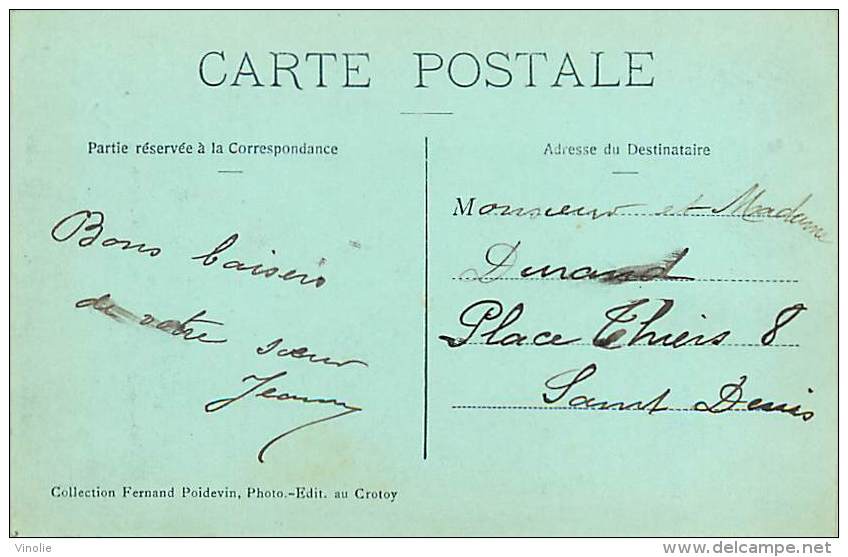 CARTE POSTALE
Partie réservée à la Correspondance
Adresse du Destinataire
Bons baisers
de votre sœur
Jeanne
Monsieur et Madame
Durand
Place Thiers 8
Saint Denis
Collection Fernand Poidevin, Photo.-Edit. au Crotoy
Vinolie
delcampe.net